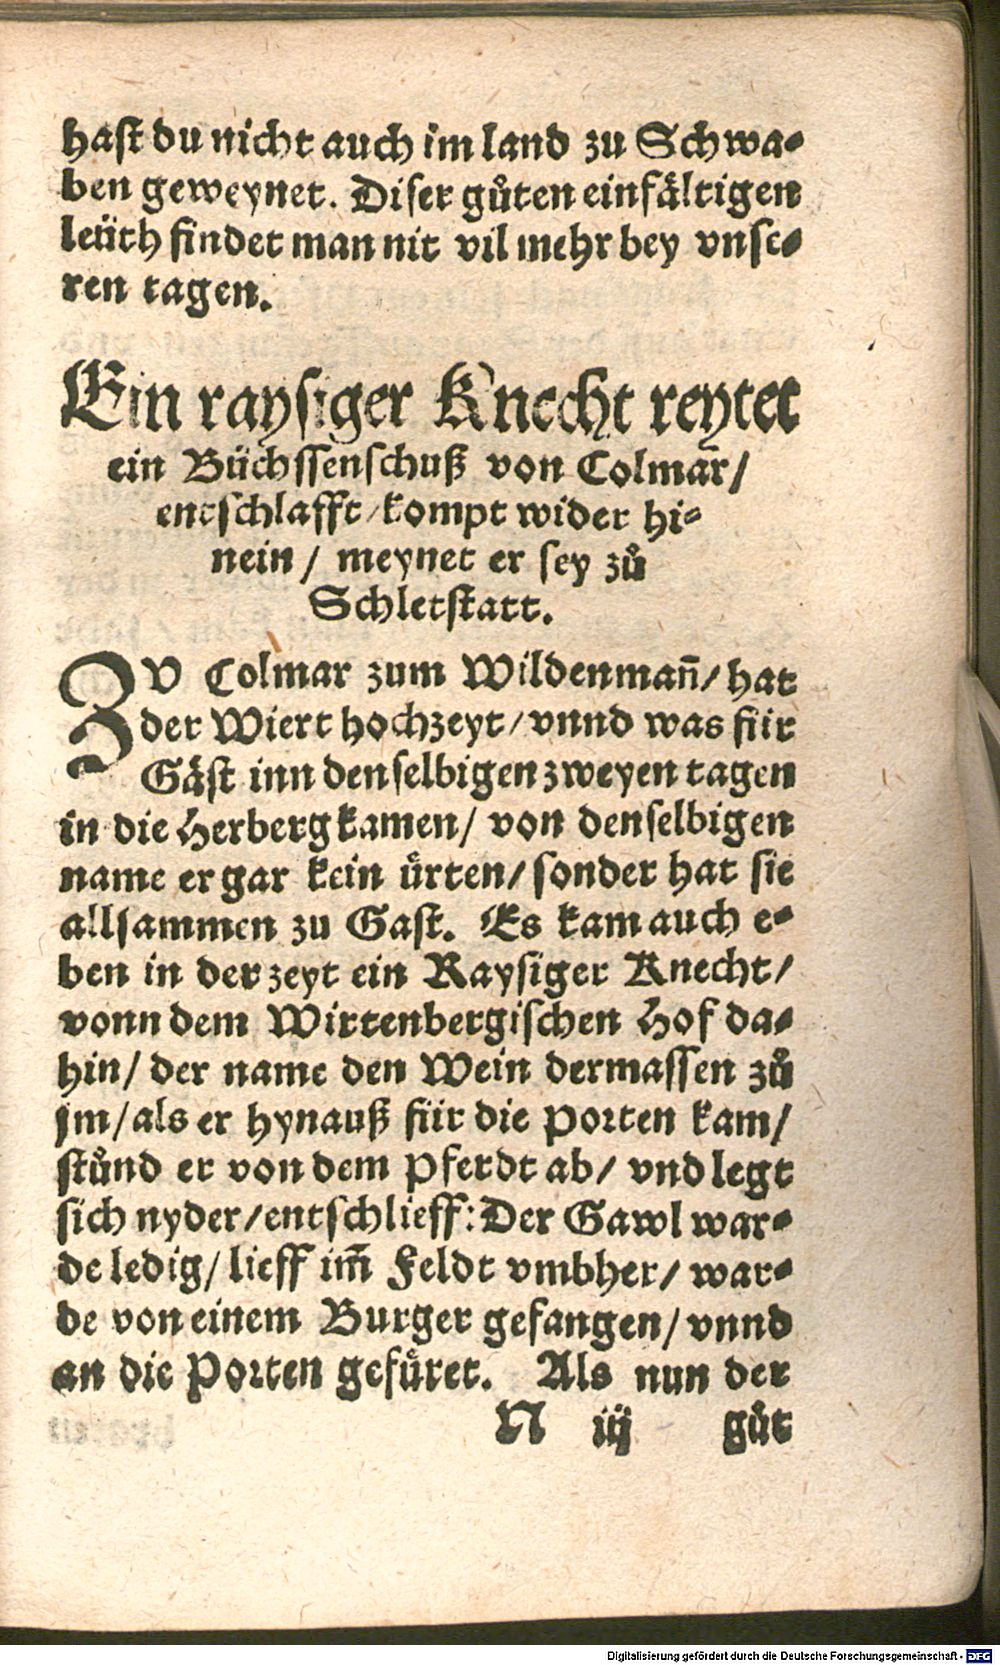 hast du nicht auch im land zu Schwa⸗
ben geweynet. Diser gůten einfåltigen
leüth findet man nit vil mehr bey vnse⸗
ren tagen.
Ein raysiger Knecht reytet
ein Büchssenschuß von Colmar/
entschlafft/kompt wider hi⸗
nein/ meynet er sey zů
Schletstatt.
ZV Colmar zum Wildenmañ/ hat
der Wiert hochzeyt/ vnnd was für
Gåst inn denselbigen zweyen tagen
in die Herberg kamen/ von denselbigen
name er gar kein ůrten/ sonder hat sie
allsammen zu Gast. Es kam auch e⸗
ben in der zeyt ein Raysiger Knecht/
vonn dem Wirtenbergischen Hof da⸗
hin/ der name den Wein dermassen zů
jm/als er hynauß für die Porten kam/
stůnd er von dem Pferdt ab/ vnd legt
sich nyder/entschlieff: Der Gawl war⸗
de ledig/ lieff im̃ Feldt vmbher/ war⸗
de von einem Burger gefangen/ vnnd
an die Porten gefůret. Als nun der
N iij gůt
Digitalisierung gefördert durch die Deutsche Forschungsgemeinschaft - DFG